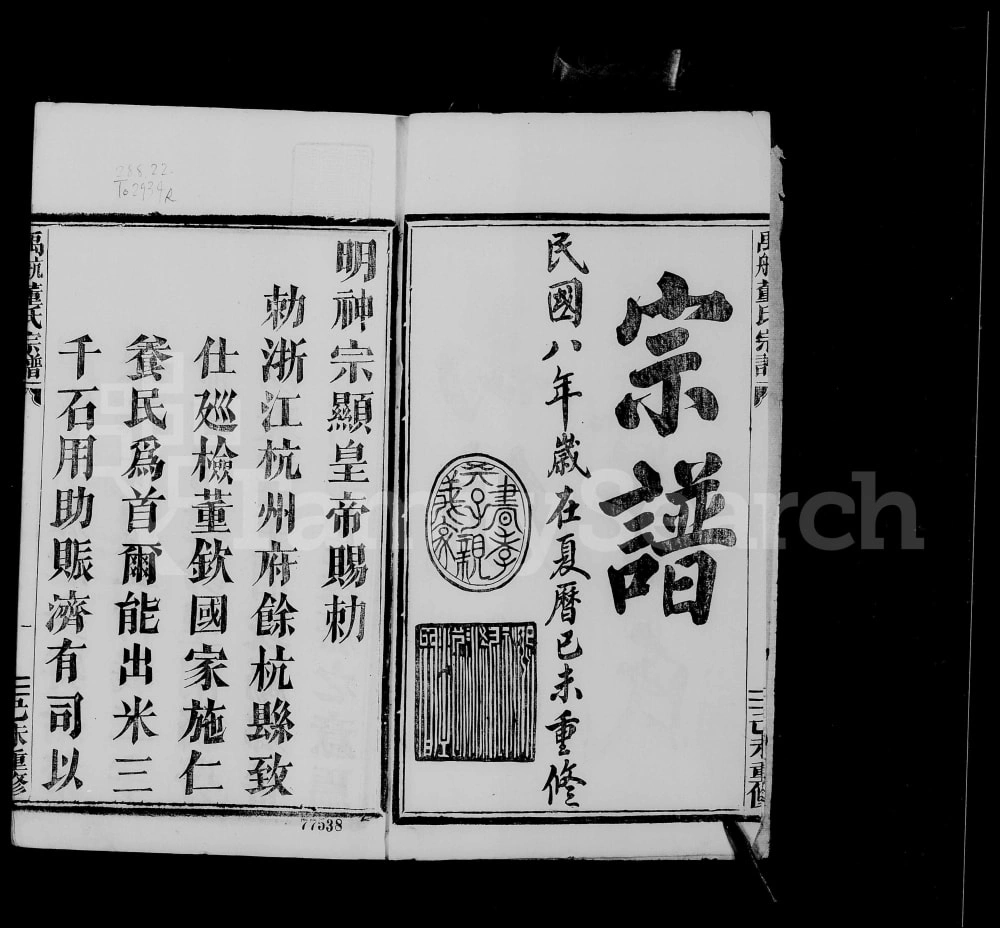 宗譜
民國八年歲在夏曆己未重修
禹航董氏宗譜
己未重修
明神宗顯皇帝賜勅
勅浙江杭州府餘杭縣致
仕廵檢董欽國家施仁
養民爲首爾能出米三
千石用助賑濟有司以
禹航董氏宗譜
一
己未重修
77538